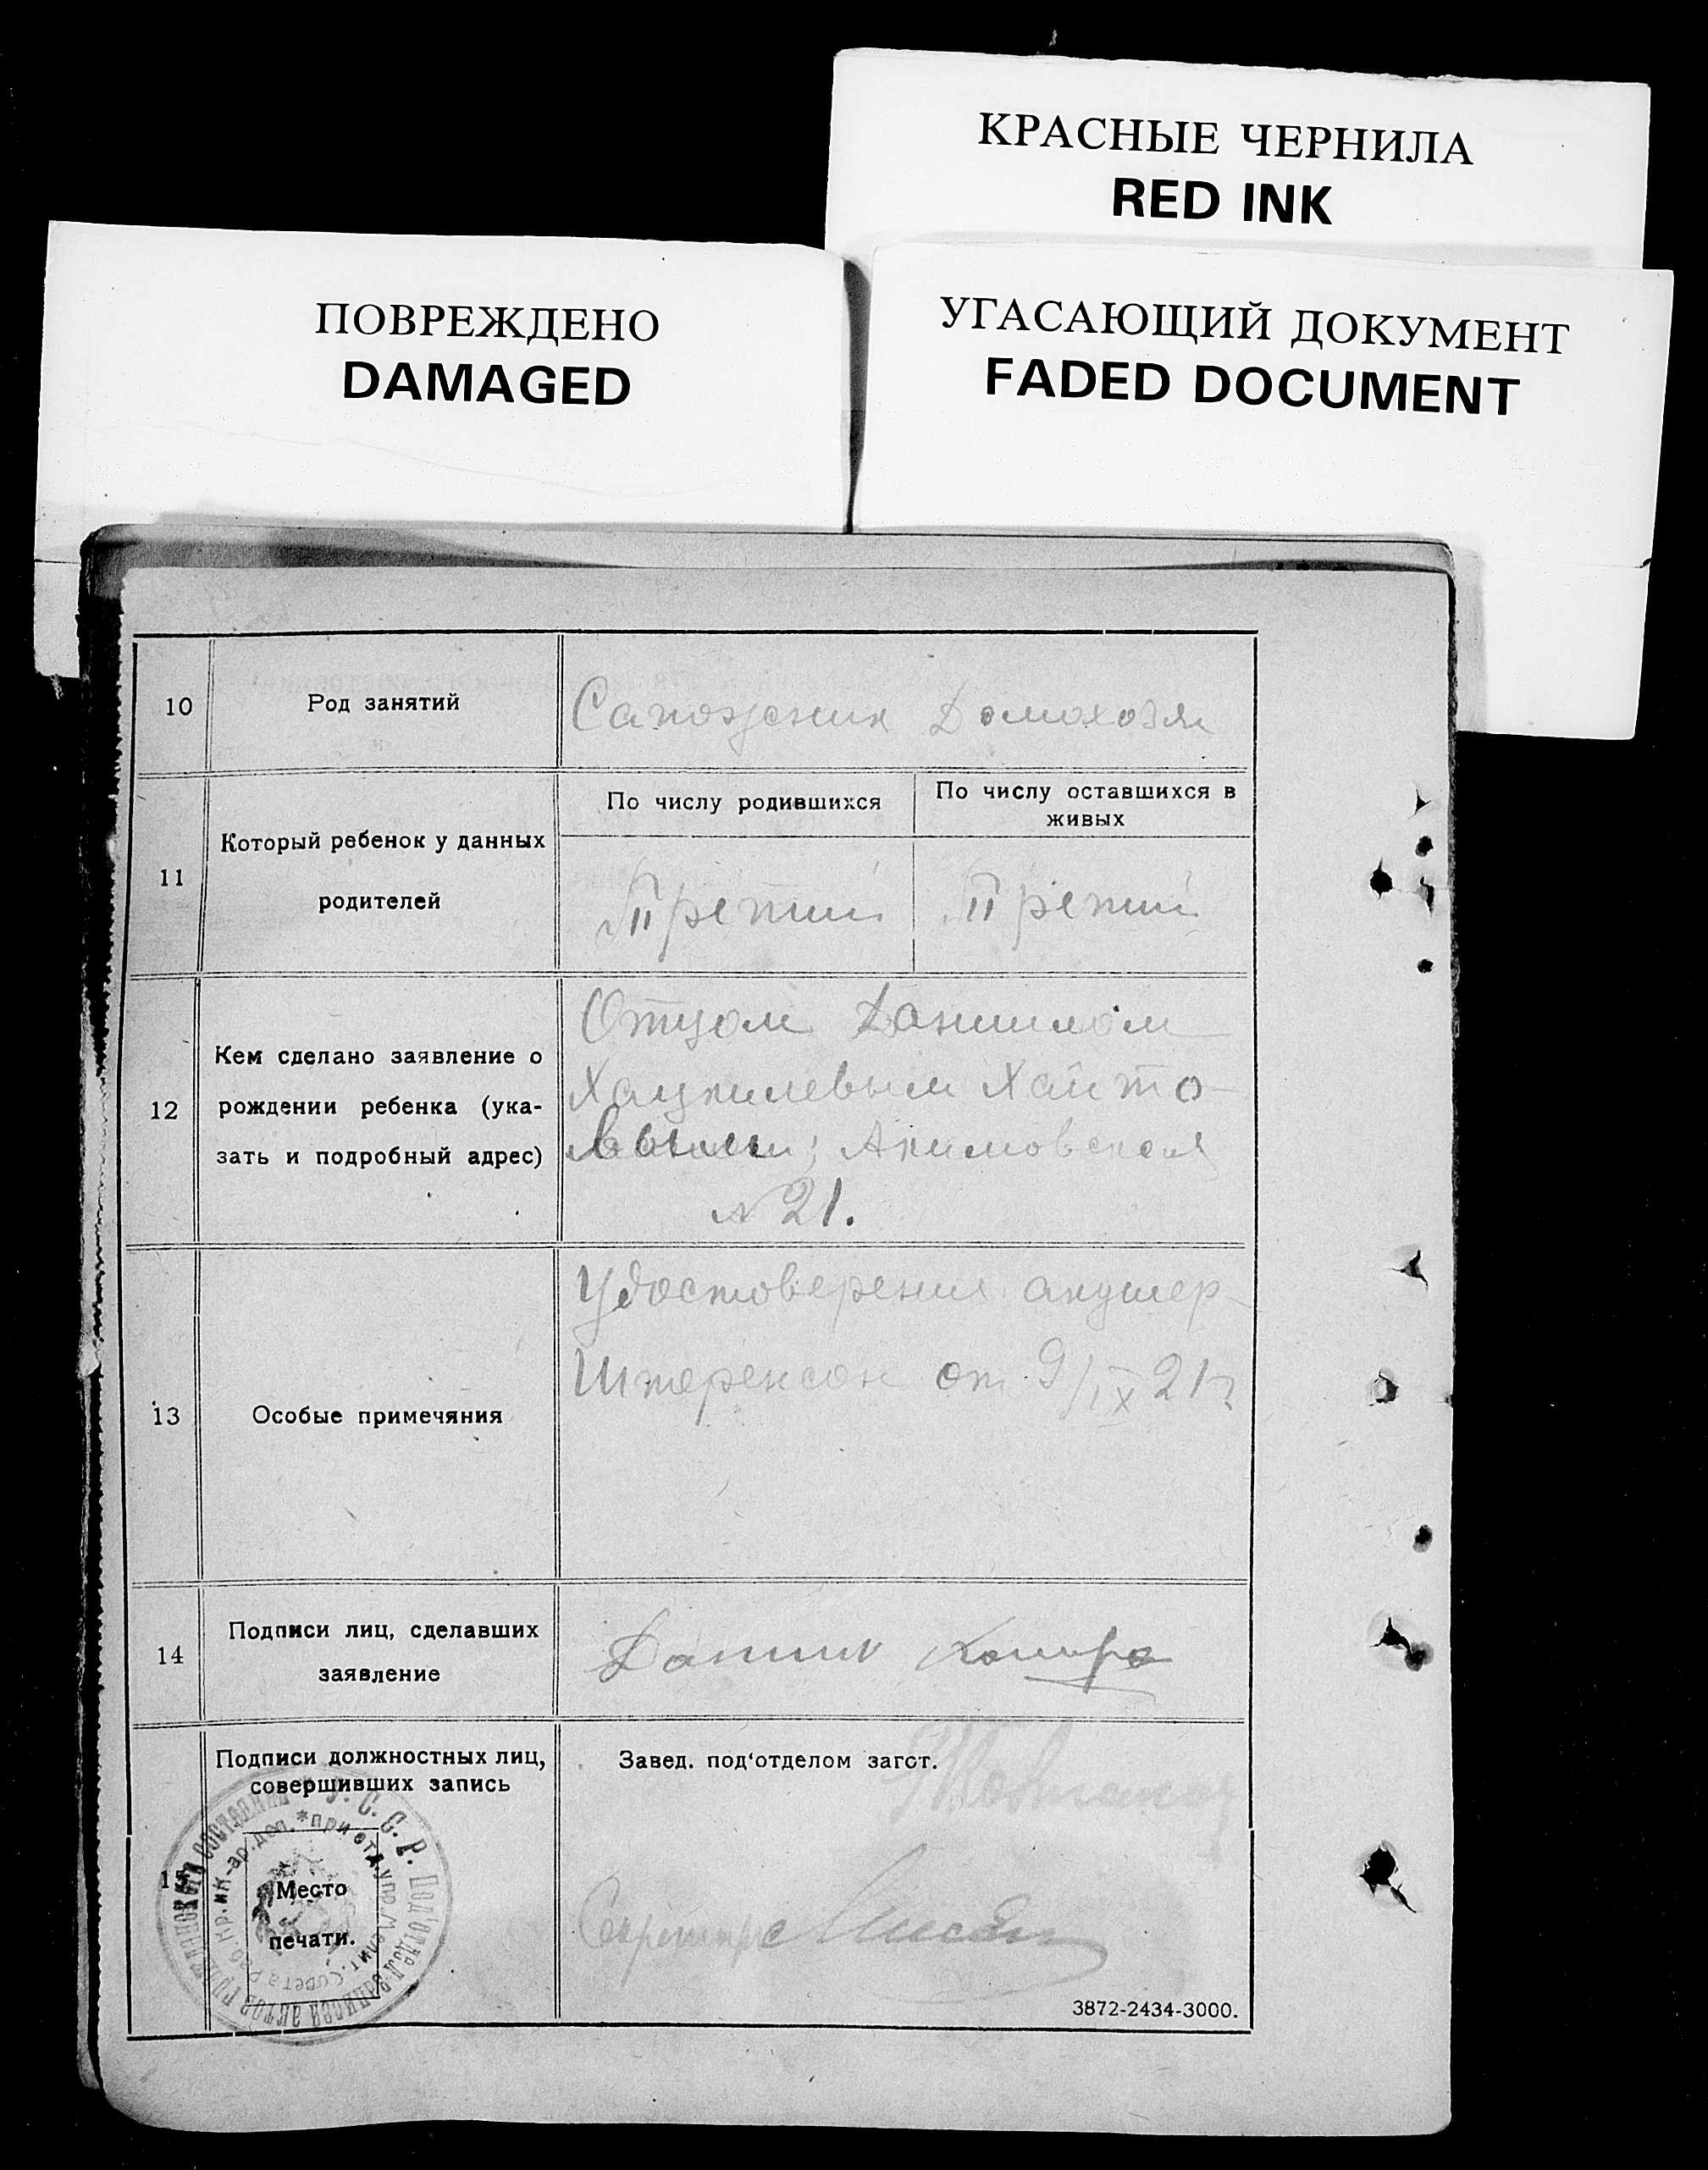 КРАСНЫЕ ЧЕРНИЛА
RED INK
ПОВРЕЖДЕНО
DAMAGED
УГАСАЮЩИЙ ДОКУМЕНТ
FADED DOCUMENT
10
Род занятий
Сапожник Домохозя
11
Который ребенок у данных
родителей
По числу родившихся
По числу оставшихся в
живых
Третий
Третий
12
Кем сделано заявление о
рождении ребенка (ука-
зать и подробный адрес)
Отцом Даниилом
Хаито-
выми; Акимовская
№ 21.
13
Особые примечяния
Удостоверения акушер-
Штеренсон от 9/IX 21 г
14
Подписи лиц, сделавших
заявление
Данил
15
Подписи должностных лиц,
совершивших запись
Место
печати.
У. С. С. Р. Под'отдел записи актов гражданского состояния
при отд. упр. Мелит. Совета Раб. Кр. и К-ар. деп.
Завед. под'отделом загст.
Секретарь
3872-2434-3000.